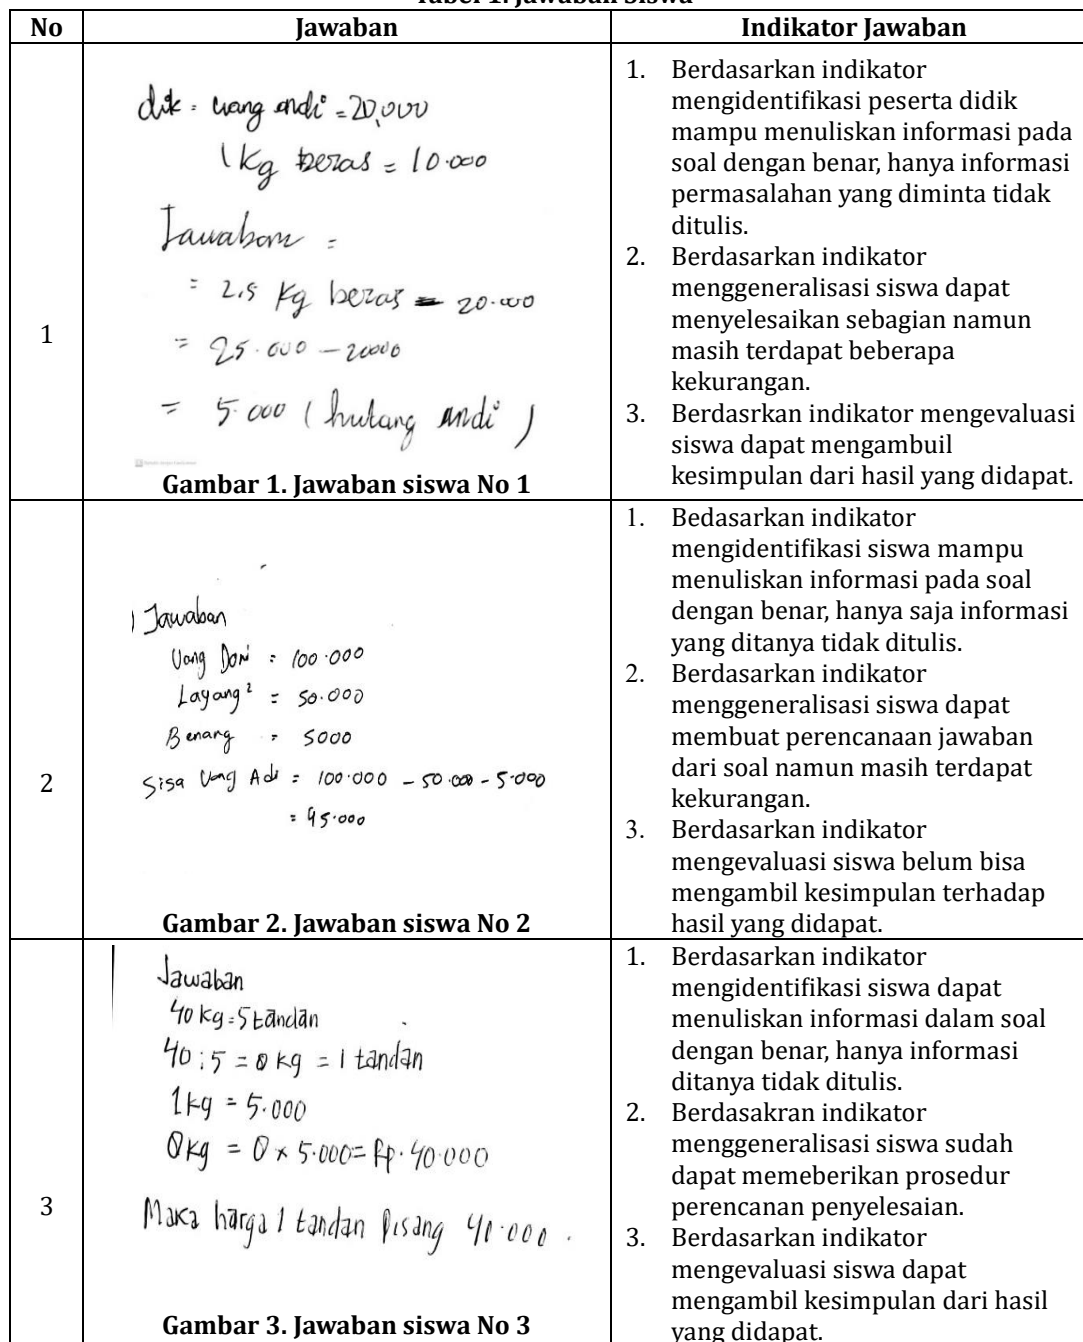 Tabel 1. Jawaban Siswa
No
Jawaban
Indikator Jawaban
1
dik = uang andi = 20,000
1 kg beras = 10.000
Jawabom =
= 2,5 kg beras = 20.000
= 25.000 - 20000
= 5.000 ( hutang andi )
Gambar 1. Jawaban siswa No 1
1. Berdasarkan indikator
mengidentifikasi peserta didik
mampu menuliskan informasi pada
soal dengan benar, hanya informasi
permasalahan yang diminta tidak
ditulis.
2. Berdasarkan indikator
menggeneralisasi siswa dapat
menyelesaikan sebagian namun
masih terdapat beberapa
kekurangan.
3. Berdasrkan indikator mengevaluasi
siswa dapat mengambuil
kesimpulan dari hasil yang didapat.
2
1 Jawaban
Uang Doni = 100.000
Layang² = 50.000
Benang = 5000
Sisa Uang Adi = 100.000 - 50.000 - 5.000
= 95.000
Gambar 2. Jawaban siswa No 2
1. Bedasarkan indikator
mengidentifikasi siswa mampu
menuliskan informasi pada soal
dengan benar, hanya saja informasi
yang ditanya tidak ditulis.
2. Berdasarkan indikator
menggeneralisasi siswa dapat
membuat perencanaan jawaban
dari soal namun masih terdapat
kekurangan.
3. Berdasarkan indikator
mengevaluasi siswa belum bisa
mengambil kesimpulan terhadap
hasil yang didapat.
3
Jawaban
40 kg = 5 tandan
40 : 5 = 8 kg = 1 tandan
1 kg = 5.000
8 kg = 8 x 5.000 = Rp. 40.000
Maka harga 1 tandan pisang 40.000.
Gambar 3. Jawaban siswa No 3
1. Berdasarkan indikator
mengidentifikasi siswa dapat
menuliskan informasi dalam soal
dengan benar, hanya informasi
ditanya tidak ditulis.
2. Berdasakran indikator
menggeneralisasi siswa sudah
dapat memeberikan prosedur
perencanan penyelesaian.
3. Berdasarkan indikator
mengevaluasi siswa dapat
mengambil kesimpulan dari hasil
yang didapat.